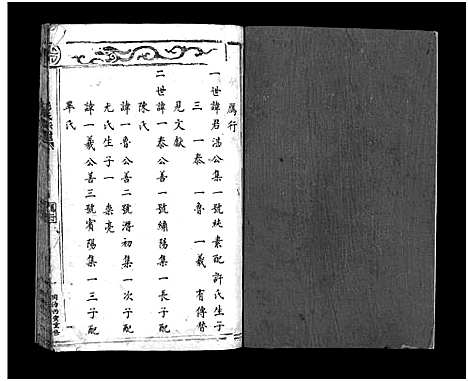 厲行
一世諱君浩公集一號純素配許氏生子
三 一泰 一魯 一義 有傳替
見文獻
二世諱一泰公善一號繡陽集一長子配
陳氏
諱一魯公善二號濬初集一次子配
尤氏生子一 崇亮
諱一義公善三號賓陽集一三子配
畢氏